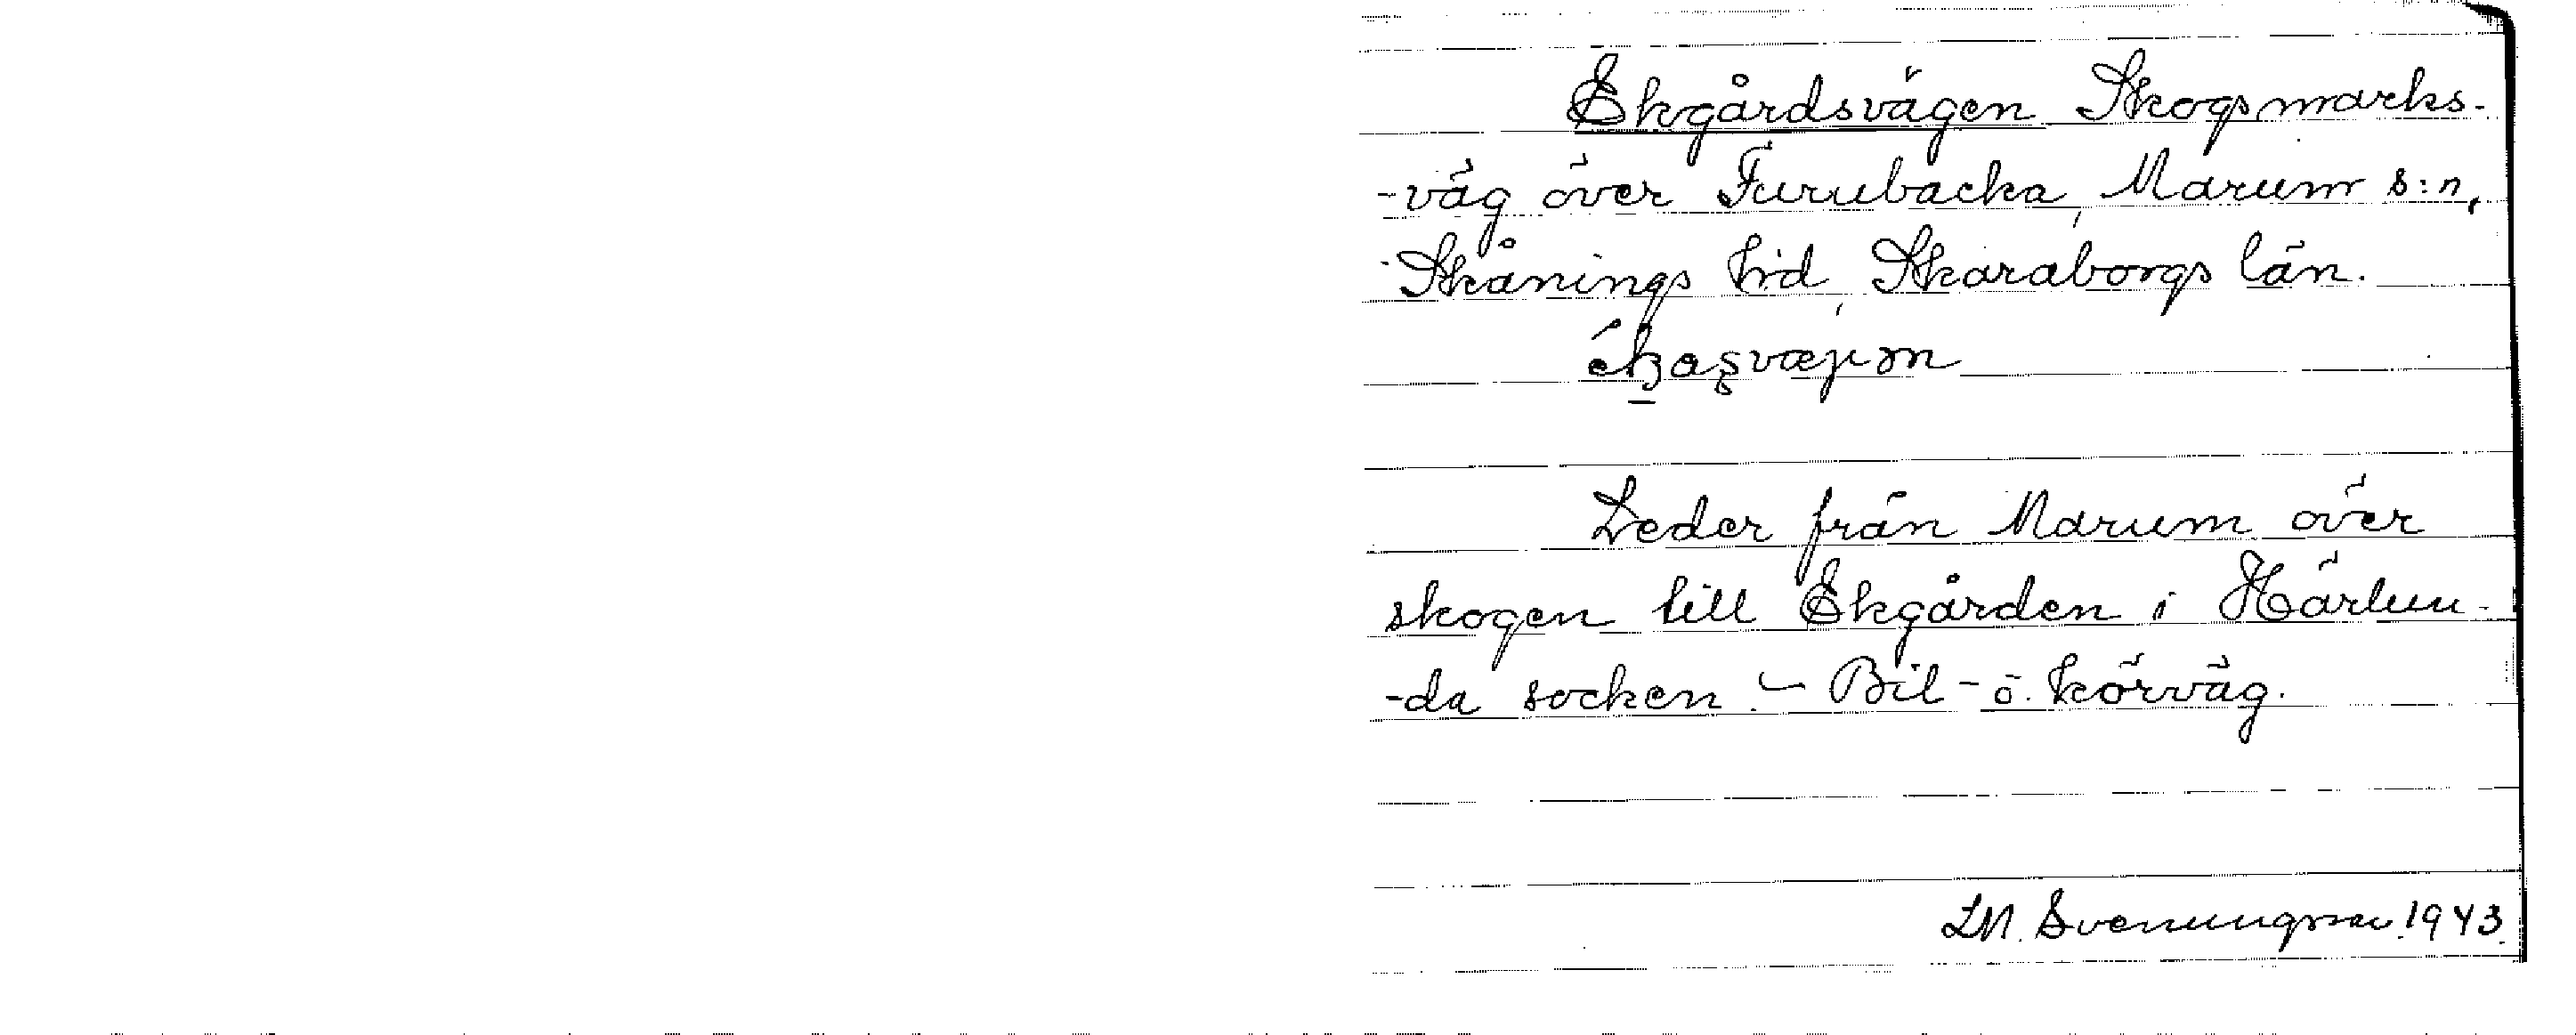 Ekgårdsvägen Skogsmarks-
-väg över Furubacka, Marum s:n,
Skånings hd, Skaraborgs län.
Leder från Marum över
skogen till Ekgården i Härlun-
-da socken. - Bil- o. körväg.
LM. Svenungsson 1943.